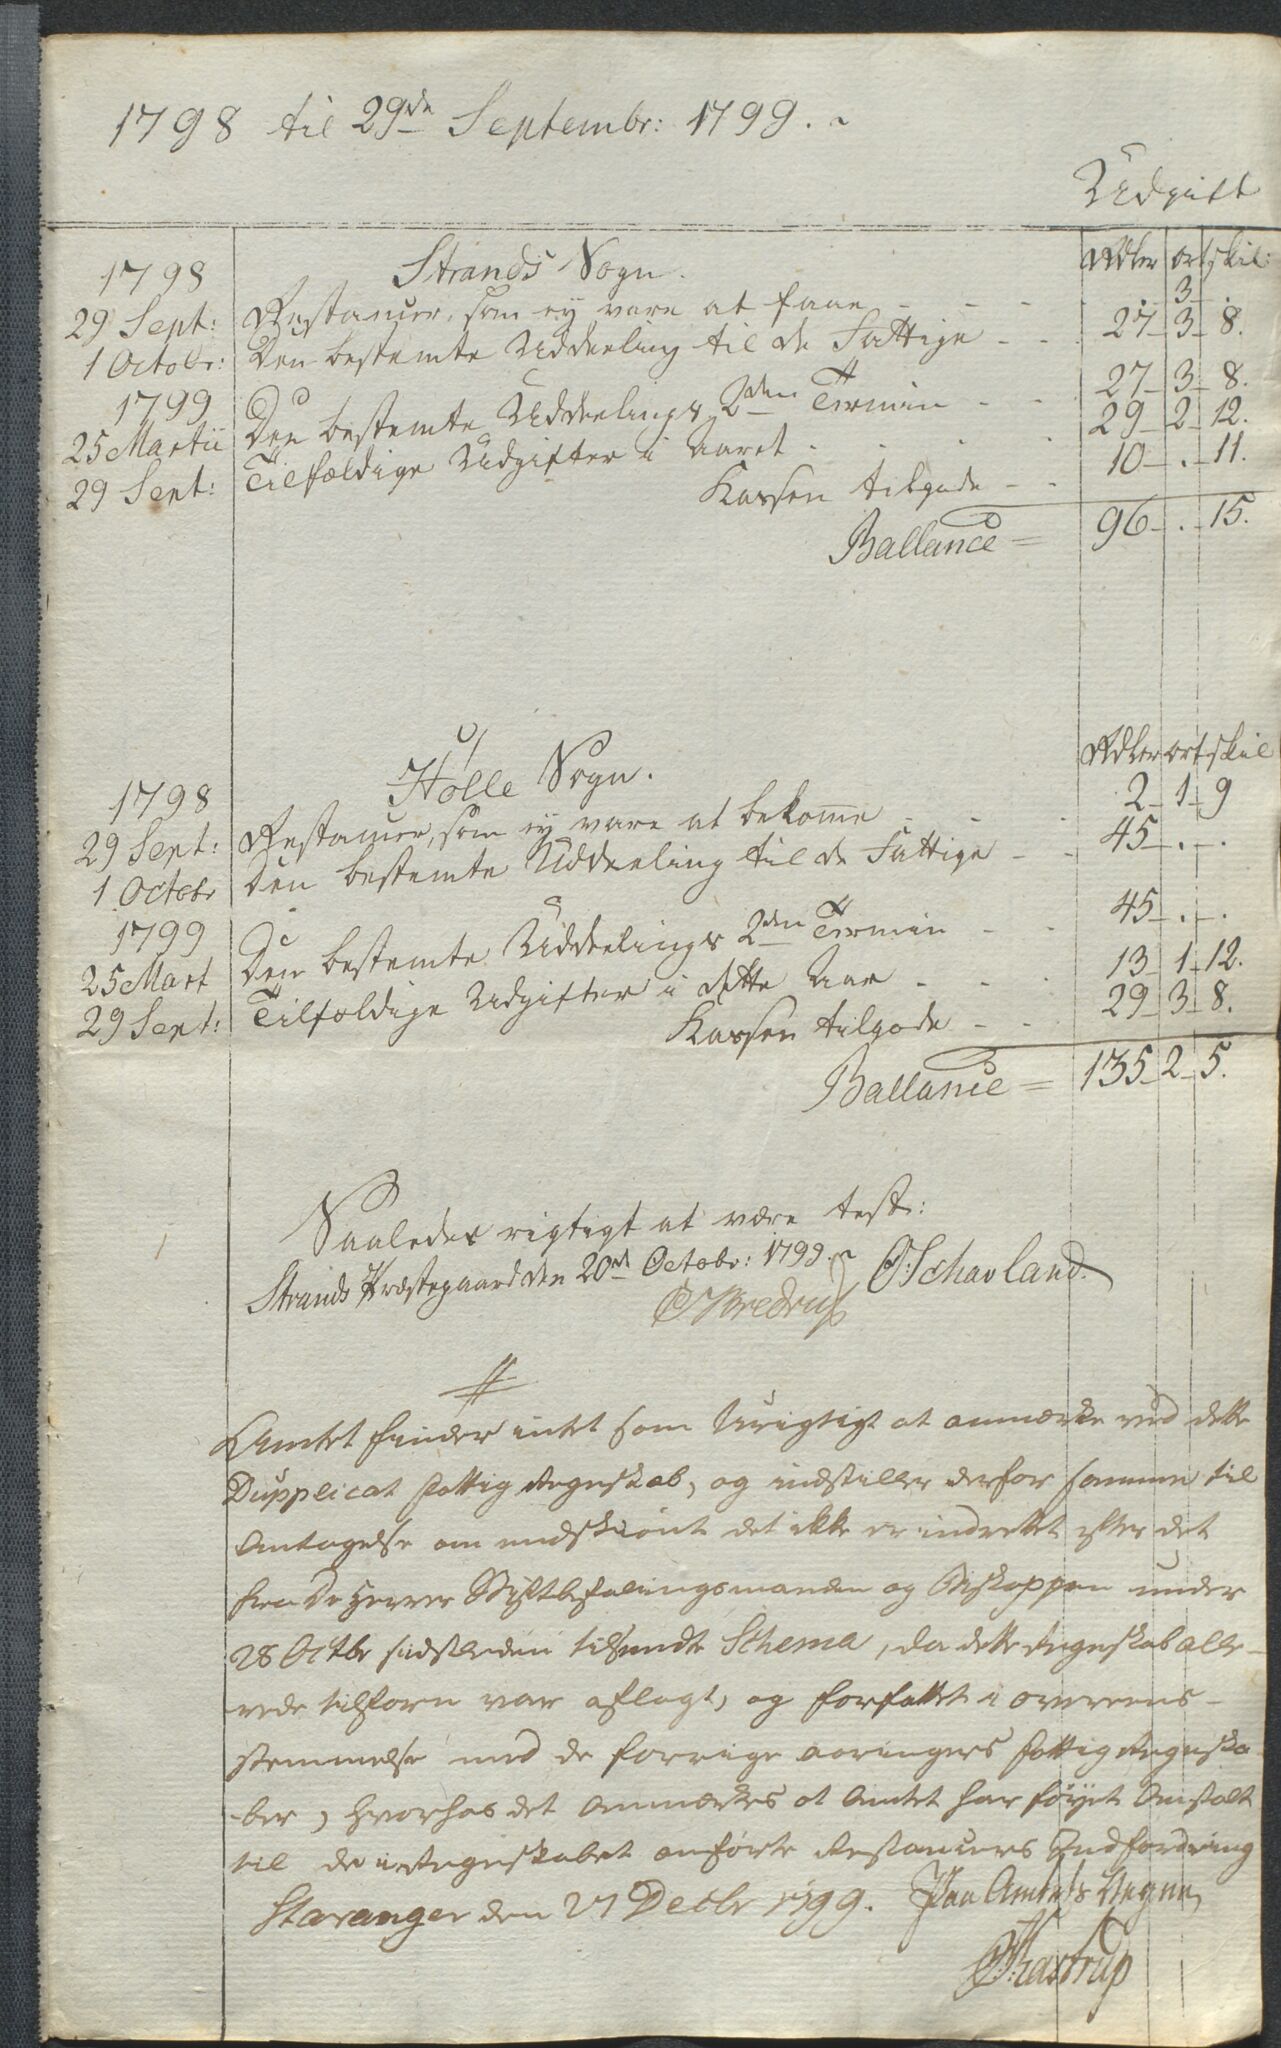 1798 til 29de Septembr: 1799.
Udgift
Rdler ort skil:
1798 Strands Sogn.
29 Sept: Restancer, som ey vare at faae - - - . - 3 - .
1 Octobr: Den bestemte Uddeeling til de Fattige - - 27 - 3 - 8.
1799
25 Martii Den bestemte Uddeelings 2den Termin - - 27 - 3 - 8.
29 Sept: Tilfældige Udgifter i Aaret - - - 29 - 2 - 12.
Kassen tilgode - - 10 - . - 11.
Ballance = 96 - . - 15.
Rdler ort skil
1798 Hölle Sogn.
29 Sept: Restancer, som ey vare at bekomme - - - 2 - 1 - 9
1 Octobr Den bestemte Uddeeling til de Fattige - - 45 - . - .
1799
25 Mart Den bestemte Uddeelings 2den Termin - - 45 - . - .
29 Sept: Tilfældige Udgifter i dette Aar - - - 13 - 1 - 12.
Kassen tilgode - - 29 - 3 - 8.
Ballance = 135 - 2 - 5.
Saaledes rigtigt at være test:
Strands Præstegaard den 20de Octobr: 1799. O Schavland.
Amtet finder intet som Urigtigt at anmærke ved dette
Dupplicat Fattig Regnskab, og indstiller derfor samme til
Antagelse om endskiönt det ikke er indrettet efter det
fra De Herrer Stiftbefalingsmanden og Biskoppen under
28 Octbr sidstleden tilsendte Schema, da dette Regnskab alle-
rede tilforn var aflagt, og forfattet i overeens-
stemmelse med de forrige aaringers Fattig Regnska
-ber, hvorhos det Anmærkes at Amtet har föyet Anstalt
til de i Regnskabet anförte Restancers Indfordring
Stavanger den 27 Decbr 1799. Paa Amtets Vegne,
Kastrup